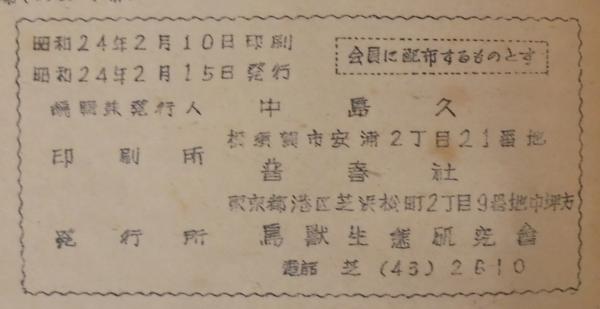 昭和24年2月10日印刷
会員に配布するものとす
昭和24年2月15日発行
編輯兼発行人 中島久
横須賀市安浦2丁目21番地
印刷所 普春社
東京都港区芝浜松町2丁目9番地中坪方
発行所 鳥獣生態研究會
電話 芝(43)2610